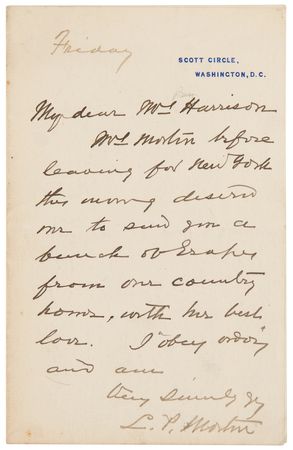 Friday
SCOTT CIRCLE,
WASHINGTON, D.C.
My dear Mrs Harrison
Mrs Morton before
leaving for New York
this morning desired
me to send you a
bunch of Grapes
from our country
home, with her best
love. I "obey orders"
and am
Very Sincerely yrs
L. P. Morton